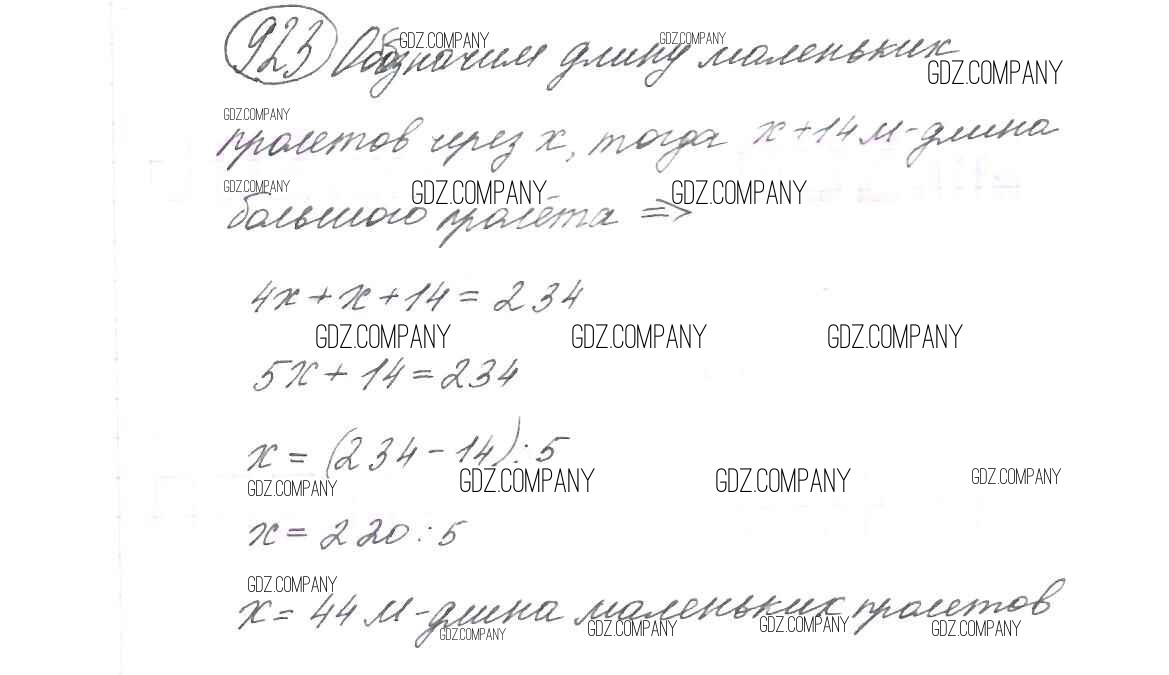 923 Обозначим длину маленьких
пролетов через x, тогда x+14 м - длина
большого пролёта =>
4x + x + 14 = 234
5x + 14 = 234
x = (234 - 14) : 5
x = 220 : 5
x = 44 м - длина маленьких пролетов
GDZ.COMPANY GDZ.COMPANY GDZ.COMPANY
GDZ.COMPANY
GDZ.COMPANY GDZ.COMPANY GDZ.COMPANY
GDZ.COMPANY GDZ.COMPANY GDZ.COMPANY
GDZ.COMPANY GDZ.COMPANY GDZ.COMPANY GDZ.COMPANY
GDZ.COMPANY
GDZ.COMPANY GDZ.COMPANY GDZ.COMPANY GDZ.COMPANY